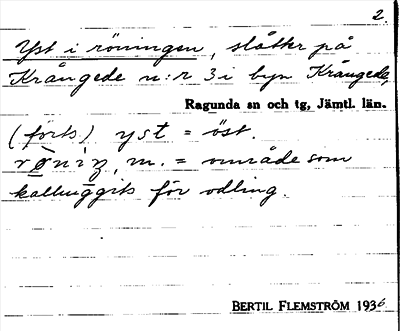 2.
Yst i röningen, slåtter på
Krångede n:r 3 i byn Krångede,
Ragunda sn och tg, Jämtl. län.
(forts.) yst = öst.
rø̄niŋ, m. = område som
kalhuggits för odling.
BERTIL FLEMSTRÖM 1936